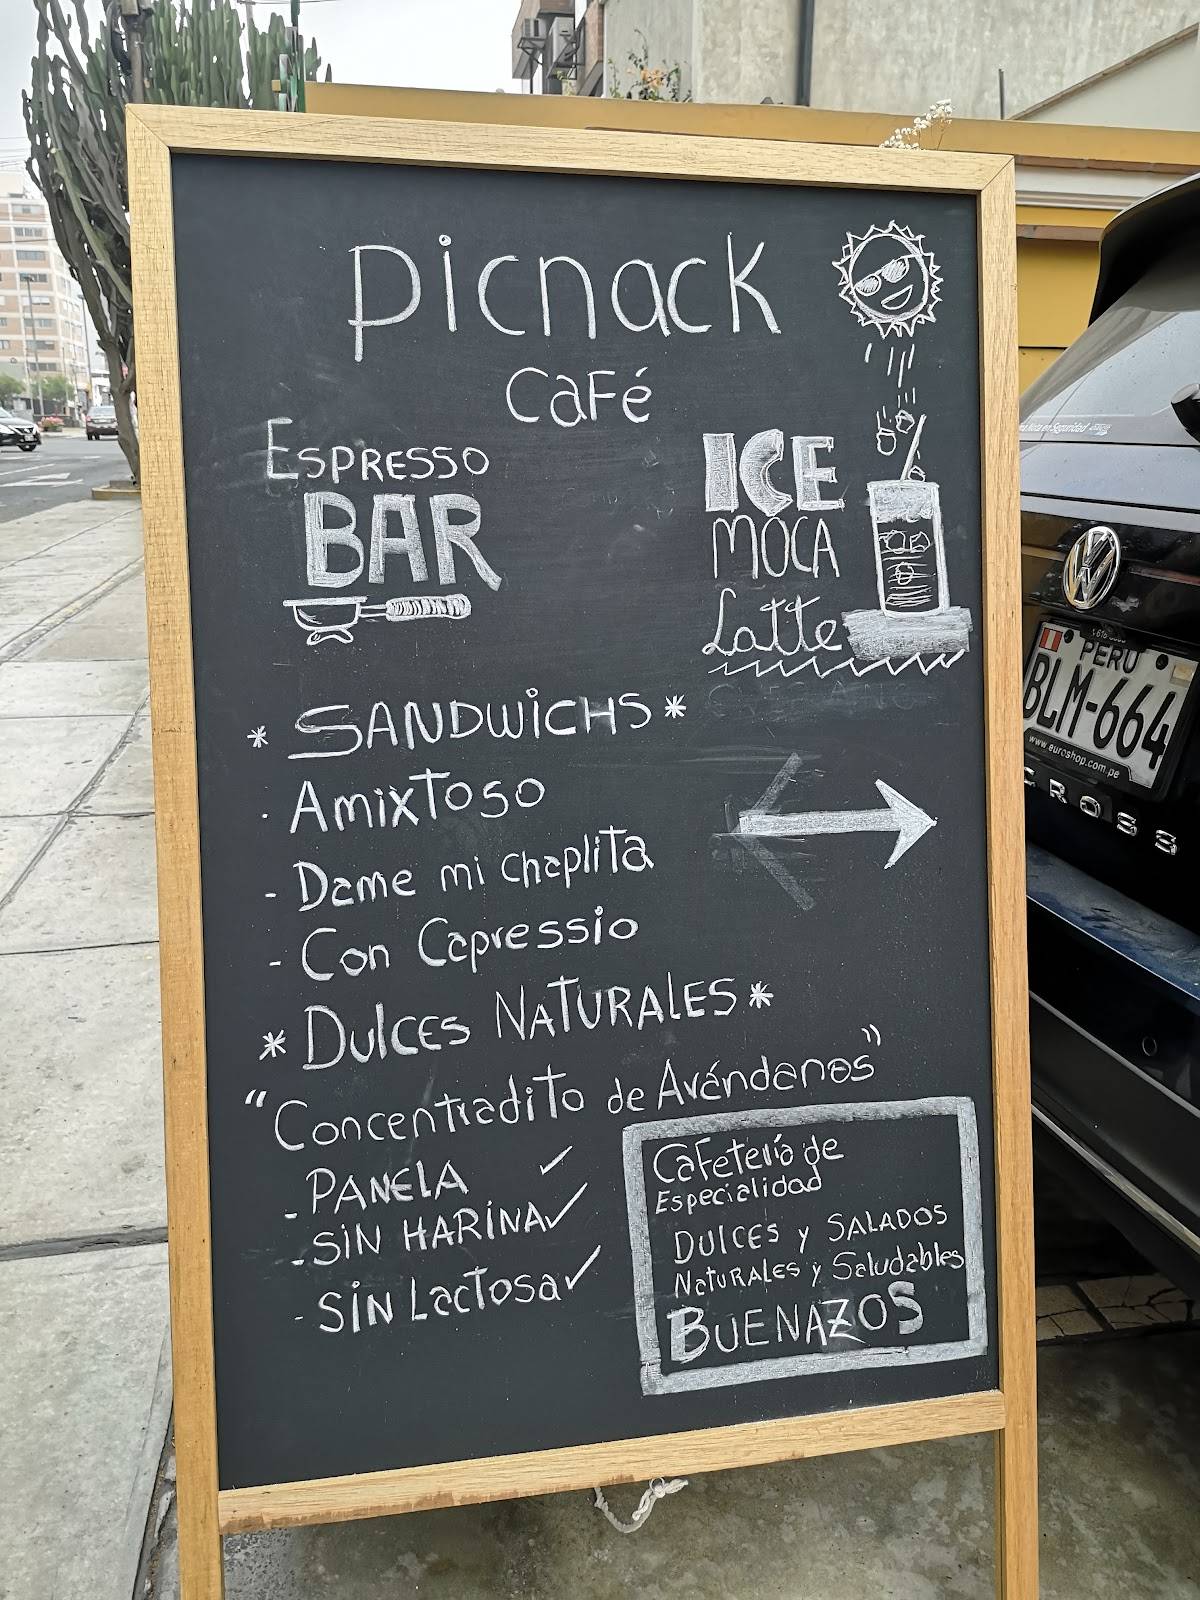 Picnack
Café
Espresso
BAR
ICE
MOCA
Latte
* SANDWICHS *
· Amixtoso
- Dame mi chaplita
- Con Capressio
* Dulces NATURALES *
"Concentradito de Arándanos"
- PANELA ✓
- SIN HARINA ✓
- SIN Lactosa ✓
Cafetería de
Especialidad
DULCES y SALADOS
NaturaLes y Saludables
BUENAZOS
PERU
BLM-664
www.euroshop.com.pe
CROSS